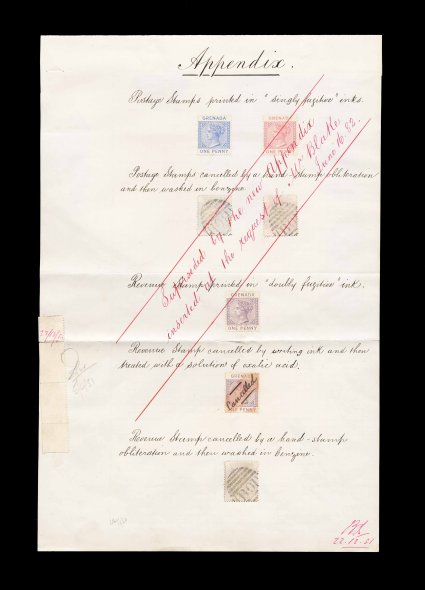 Appendix.
Postage Stamps printed in "singly fugitive" inks.
GRENADA
ONE PENNY
GRENADA
ONE PENNY
Postage Stamps cancelled by a hand-stamp obliteration
and then washed in benzine.
Superseded by the new Appendix
inserted at the request of Mr Blake
June 16. 82.
Revenue Stamp printed in "doubly fugitive" ink.
GRENADA
ONE PENNY
Revenue Stamp cancelled by writing ink and then
treated with a solution of oxalic acid.
GRENADA
Cancelled
ONE PENNY
Revenue Stamp cancelled by a hand-stamp
obliteration and then washed in benzine.
22.12.81